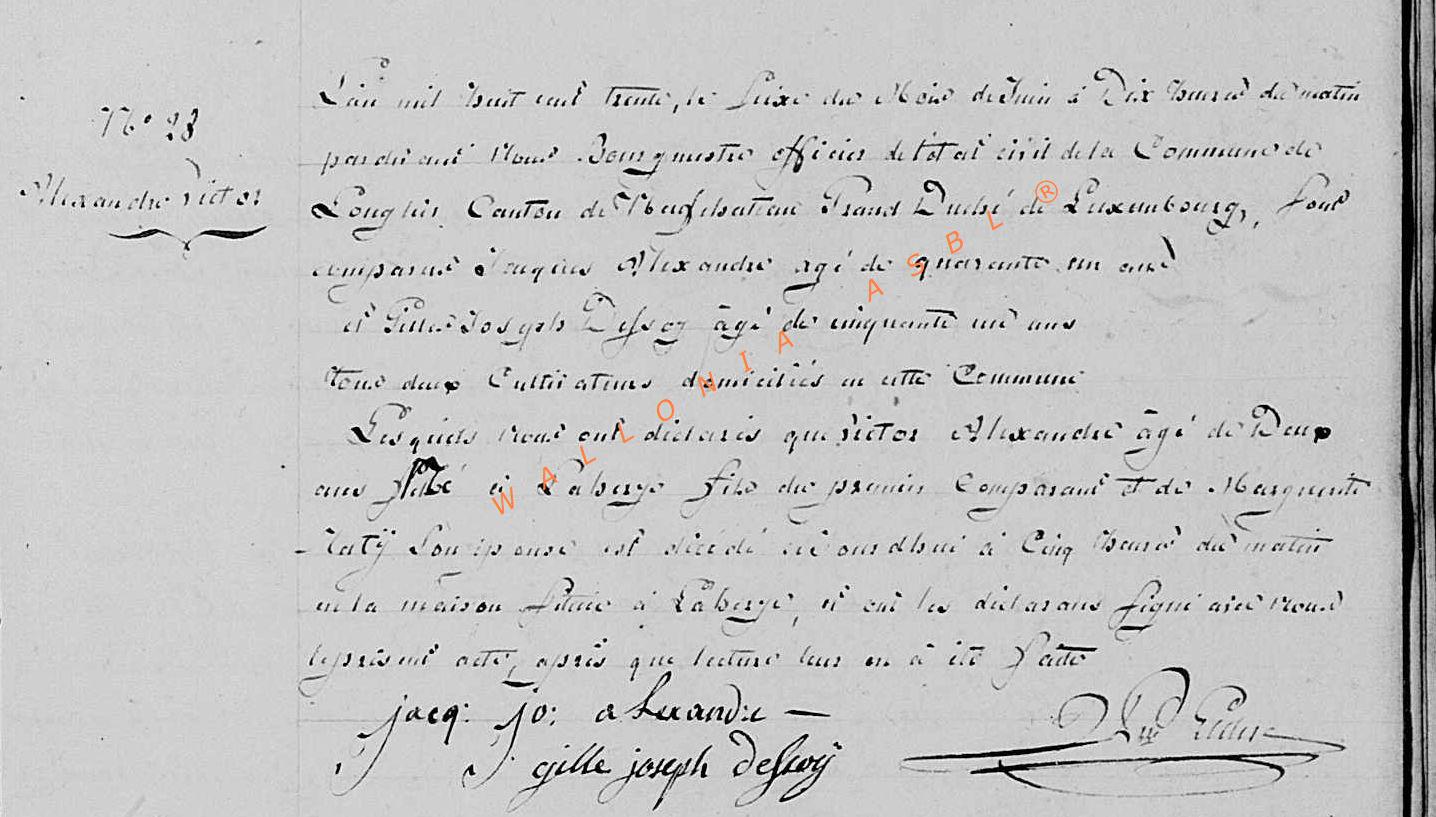 N° 23
Alexandre Victor
L'an mil huit cent trente, le seize du Mois de Juin à Dix heures du matin
pardevant Nous Bourgmestre officier de l'état civil de la Commune de
Longlier, Canton de Neufchateau Grand Duché de Luxembourg, sont
comparus Jaques Alexandre agé de quarante un ans
et Gilles Joseph Dessoy âgé de cinquante un ans
tous deux Cultivateurs domiciliés en cette Commune
Lesquels nous ont déclarés que Victor Alexandre âgé de Deux
ans né à Laherye fils du premier Comparant et de Marguerite
son épouse est décédé aujourdhui à Cinq heures du matin
en la maison située à Laherye, et ont les déclarans signé avec nous
le présent acte, après que lecture leur en à été faite
jacq: jo: alexandre
gille joseph Dessoÿ
WALLONIA ASBL ®